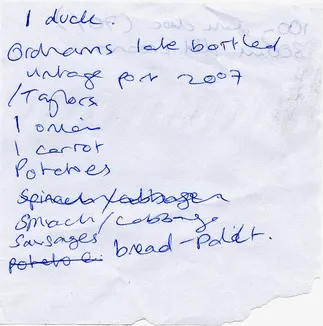 1 duck.
Ordhams late bottled
vintage port 2007
/Taylors
1 onion
1 carrot
Potatoes
Spinach/cabbage
Spinach/cabbage
Sausages bread-
potatoe